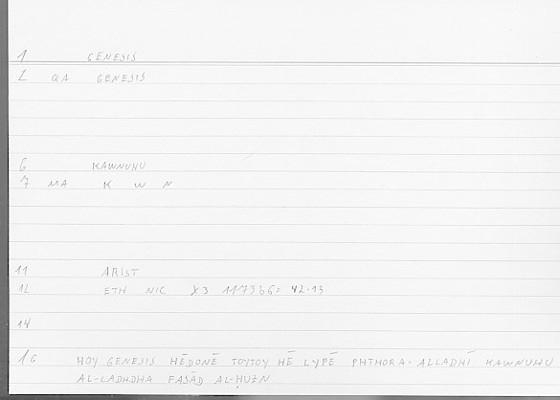 1 GENESIS
2 QA GENESIS
6 KAWNUHU
7 MA K W N
11 ARIST
12 ETH NIC X3 1173b6= 42.13
14
16 HOY GENESIS HĒDONĒ TOYTOY HĒ LYPĒ PHTHORA. ALLADHĪ KAWNUHU
AL-LADHDHA FASĀD AL-ḤUZN